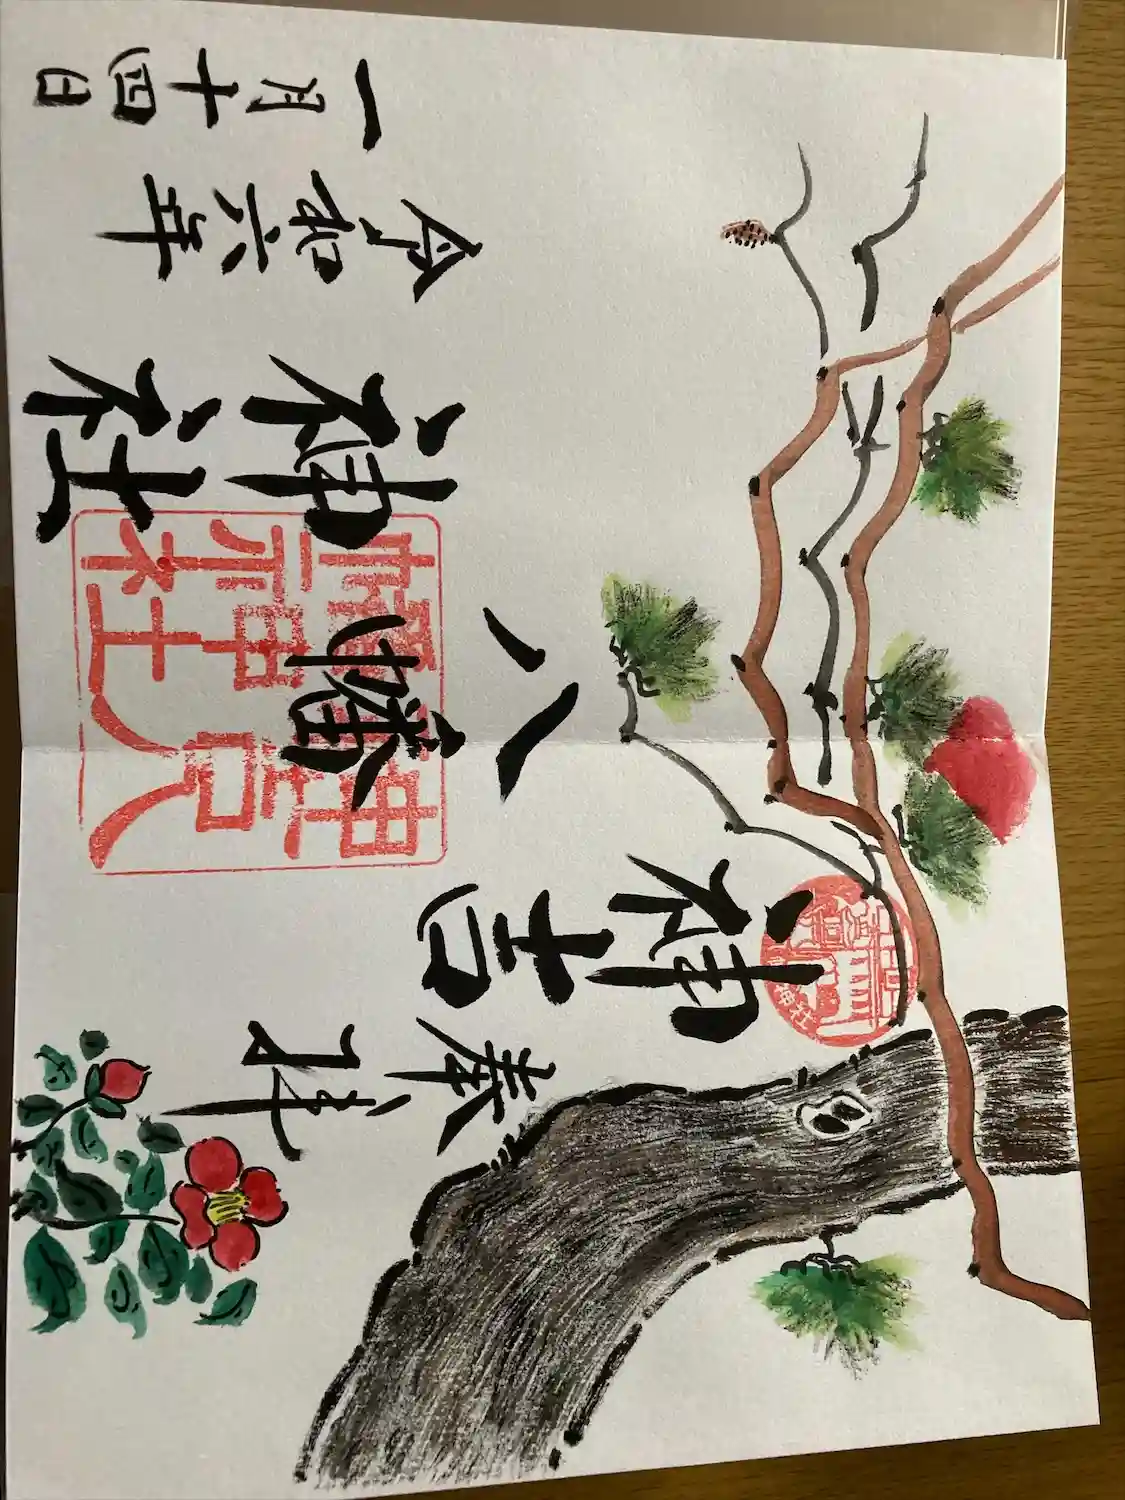 奉拝
神吉
八幡
神社
令和六年
一月十四日
神吉八
幡神社